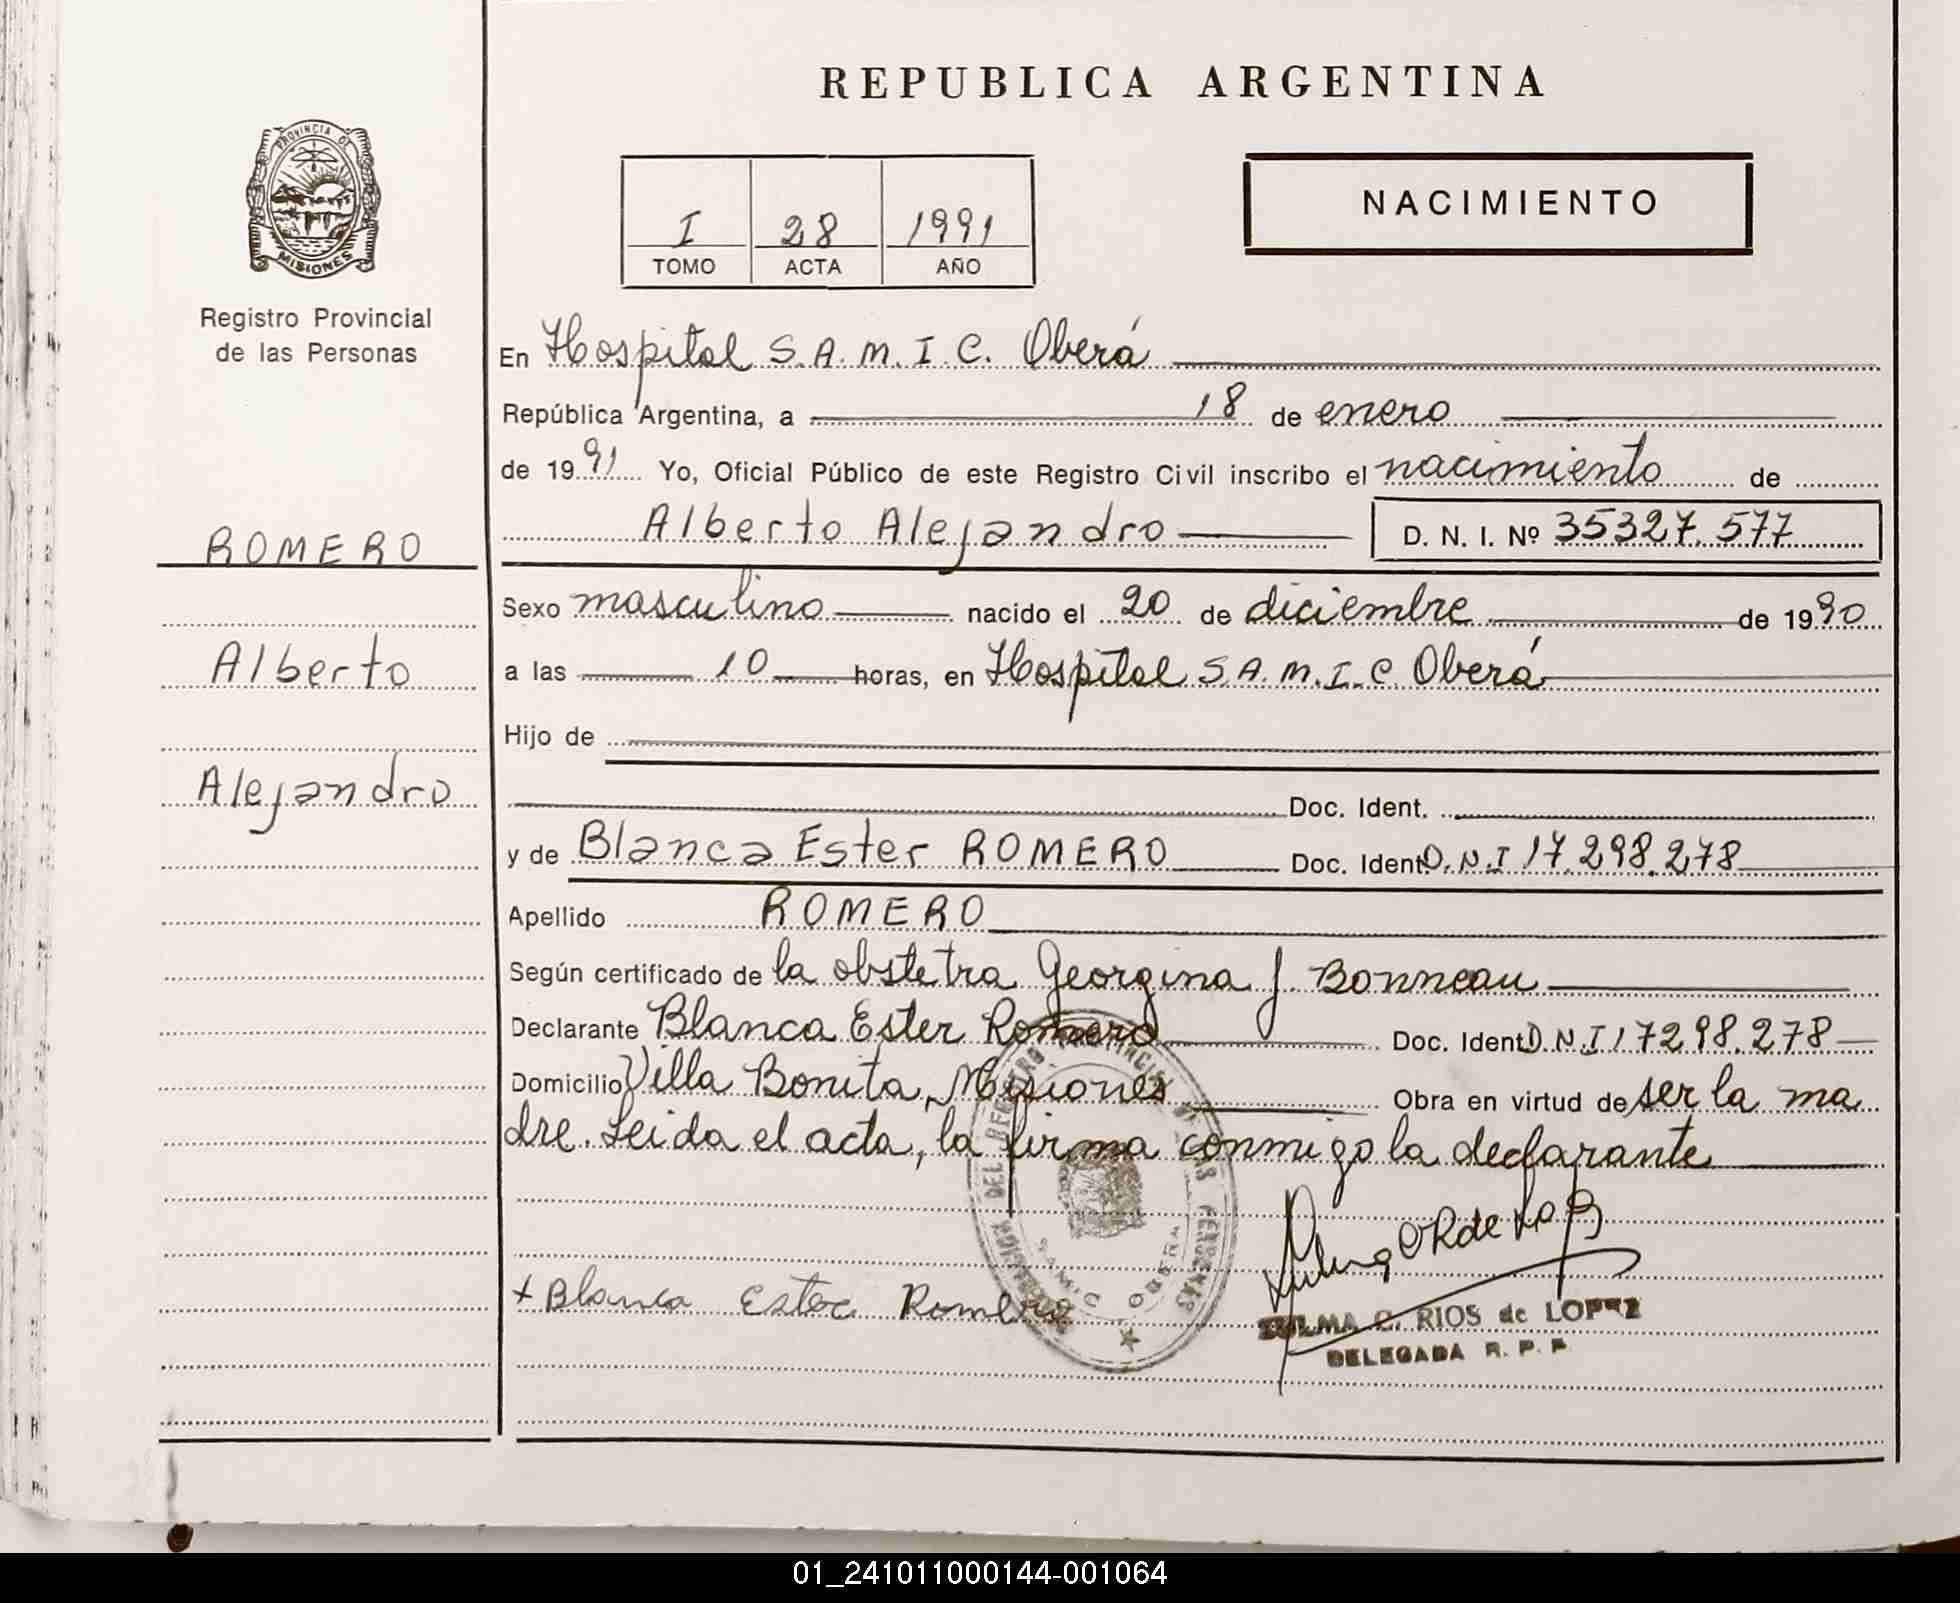 REPUBLICA ARGENTINA
PROVINCIA DE
MISIONES
Registro Provincial
de las Personas
I 28 1991
TOMO ACTA AÑO
NACIMIENTO
En Hospital S.A.M.I.C. Oberá
República Argentina, a 18 de enero
de 1991 Yo, Oficial Público de este Registro Civil inscribo el nacimiento de
ROMERO
Alberto Alejandro D. N. I. Nº 35327.577
Sexo masculino nacido el 20 de diciembre de 1990
Alberto
a las 10 horas, en Hospital S.A.M.I.C Oberá
Hijo de
Alejandro
Doc. Ident.
y de Blanca Ester ROMERO Doc. Ident D.N.I 17.298.278
Apellido ROMERO
Según certificado de la obstetra Georgina J. Bonneau
Declarante Blanca Ester Romero Doc. Ident D.N.I 17298.278
Domicilio Villa Bonita, Misiones Obra en virtud de ser la ma
dre. Leida el acta, la firma conmigo la declarante
+ Blanca Ester Romero
OBERA
ZULMA C. RIOS de LOPEZ
DELEGADA R. P. P.
01_241011000144-001064